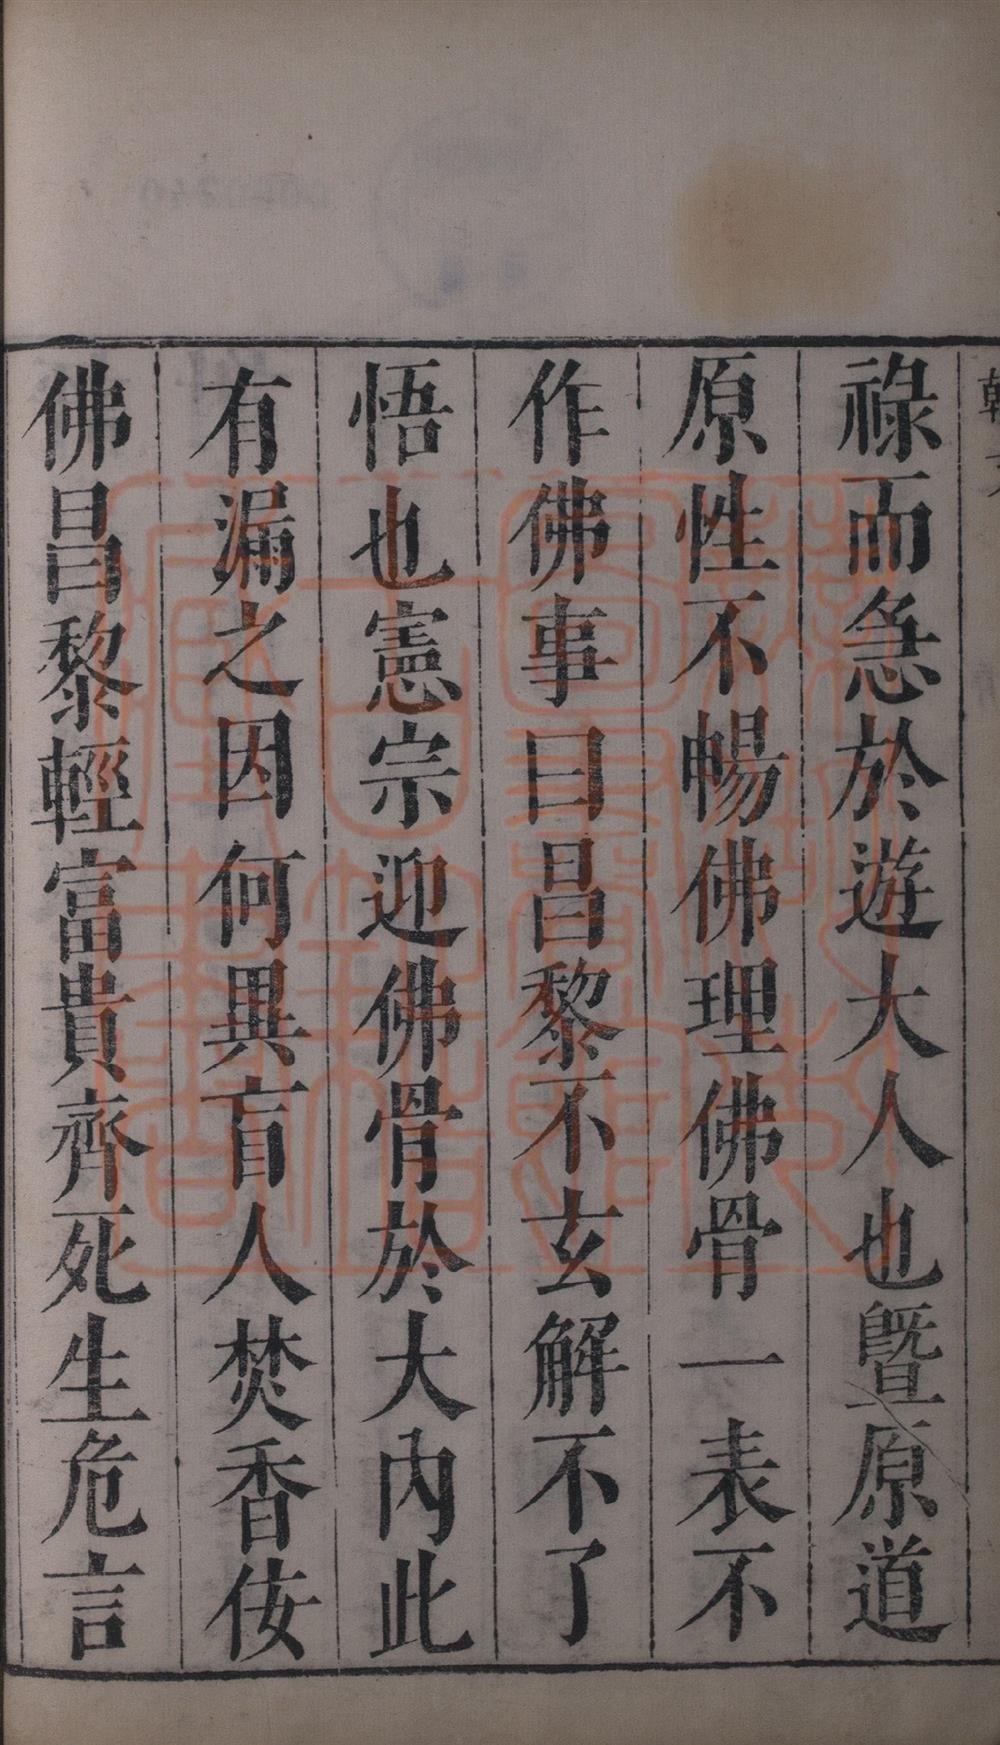 祿而急於遊大人也曁原道
原性不暢佛理佛骨一表不
作佛事曰昌黎不玄解不了
悟也憲宗迎佛骨於大內此
有漏之因何異盲人焚香佞
佛昌黎輕富貴齊死生危言